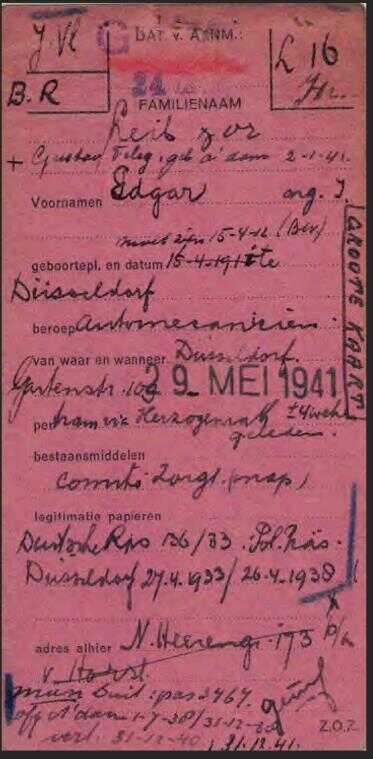 J. Vl
G
DAT v. AANM.:
L 16
B.R
24
FAMILIENAAM
Leib zor
+ Gustav Feleg, geb A'dam 2-1-41.
Voornamen Edgar ong. I.
moet zijn 15-4-12 (Bev)
geboortepl. en datum 15-4-191 te
Düsseldorf
beroep Automecanicien
van waar en wanneer Düsseldorf.
Gartenstr. 102
29. MEI 1941
GROOTE KAART
per tram via Herzogenrath ± 4 weken
geleden.
bestaansmiddelen
Comité Zorgt (map)
legitimatie papieren
Duitsche Rps 136/83 Pol. Präs.
Düsseldorf 27.4.1933/26.4.1938
adres alhier N. Heerengr. 173 p/a
v. Horst
buit. pas 3767.
afg A'dam 1-7-38/31-12-
verl. 31-12-40, 31.12.41.
Z.O.Z.